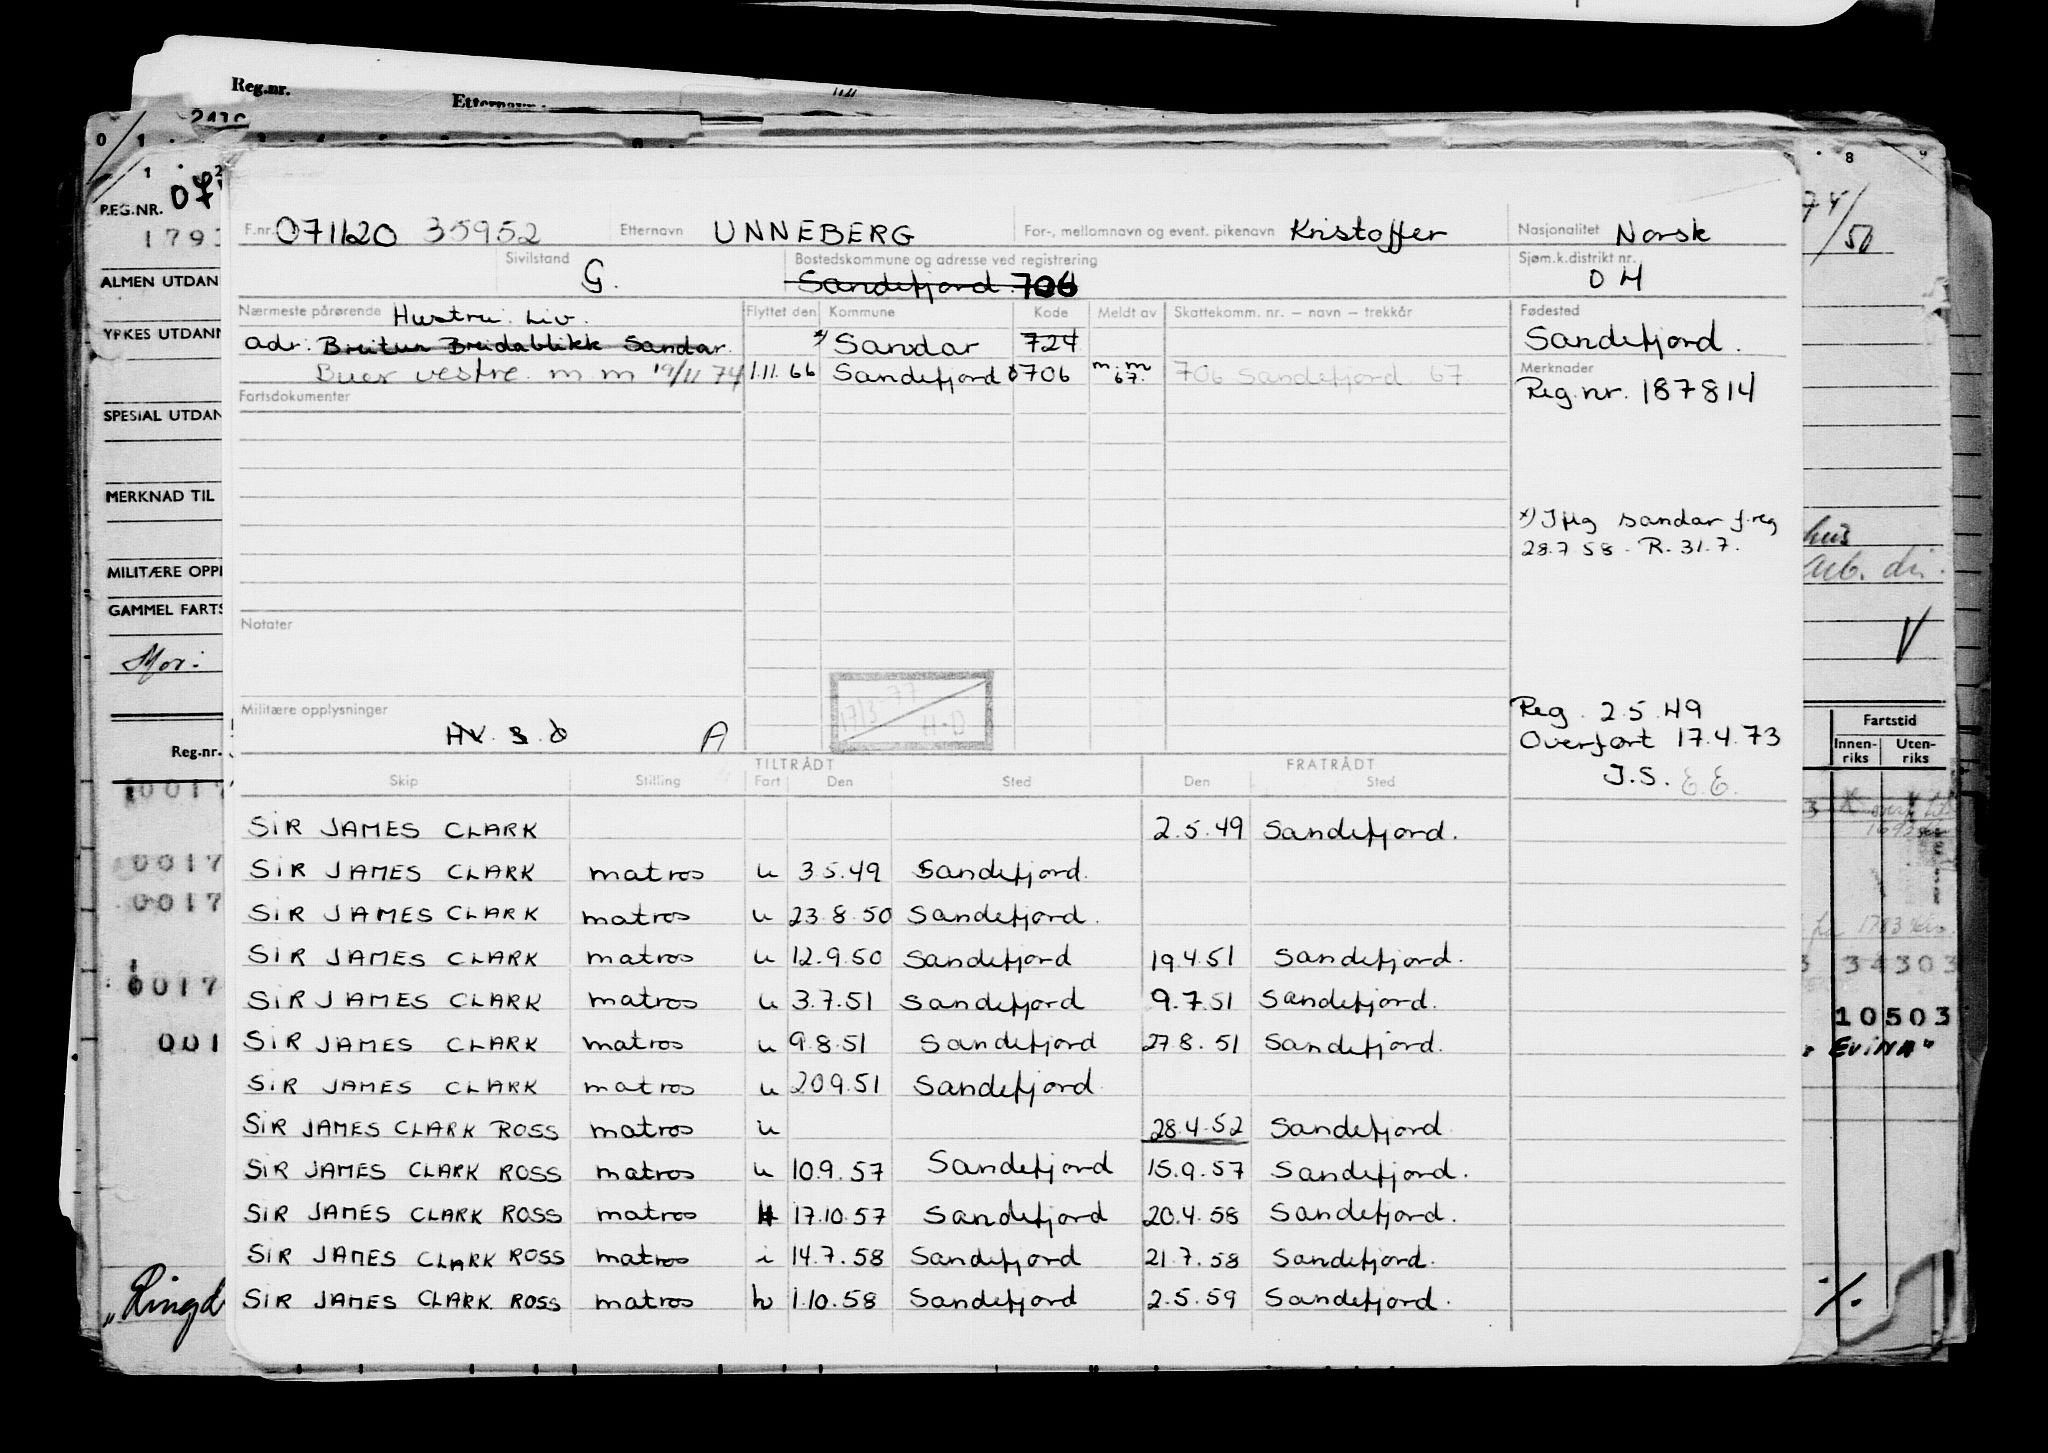 Reg.nr.
Etternavn
REG.NR.
F.nr. 071120 35952 Etternavn UNNEBERG For-, mellomnavn og event. pikenavn Kristoffer Nasjonalitet Norsk
Sivilstand G. Bostedskommune og adresse ved registrering Sandefjord 706 Sjøm.k.distrikt nr. 04
Nærmeste pårørende Hustru Liv. Flyttet den Kommune Kode Meldt av Skattekomm. nr. – navn – trekkår Fødested
adr. Breidablikk Sandar. *) Sandar 724 Sandefjord.
Buer vestre m m 19/11 74 1.11.66 Sandefjord 706 m.m 67. 706 Sandefjord 67 Merknader
Fartsdokumenter Reg.nr. 187814
*) Iflg Sandar f.reg
28.7 58 - R. 31.7.
Notater
17/3-77
H.D
Militære opplysninger A
Reg. 2.5.49
Overført 17.4.73
J.S. E.E.
TILTRÅDT FRATRÅDT
Skip Stilling Fart Den Sted Den Sted
SIR JAMES CLARK 2.5.49 Sandefjord.
SIR JAMES CLARK matros u 3.5.49 Sandefjord.
SIR JAMES CLARK matros u 23.8.50 Sandefjord.
SIR JAMES CLARK matros u 12.9.50 Sandefjord 19.4.51 Sandefjord.
SIR JAMES CLARK matros u 3.7.51 Sandefjord 9.7.51 Sandefjord.
SIR JAMES CLARK matros u 9.8.51 Sandefjord 27.8.51 Sandefjord.
SIR JAMES CLARK matros u 20.9.51 Sandefjord
SIR JAMES CLARK ROSS matros u 28.4.52 Sandefjord
SIR JAMES CLARK ROSS matros u 10.9.57 Sandefjord 15.9.57 Sandefjord.
SIR JAMES CLARK ROSS matros 17.10.57 Sandefjord 20.4.58 Sandefjord.
SIR JAMES CLARK ROSS matros i 14.7.58 Sandefjord 21.7.58 Sandefjord.
SIR JAMES CLARK ROSS matros h 1.10.58 Sandefjord 2.5.59 Sandefjord.
ALMEN UTDAN
YRKES UTDANN
SPESIAL UTDAN
MERKNAD TIL
MILITÆRE OPPL
GAMMEL FARTS
Reg.nr.
0017
0017
0017
001
Fartstid
Innen-riks Uten-riks
34303
10503
"EVINA"